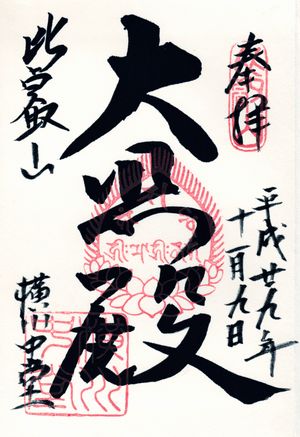 奉拝
平成廿九年
十一月九日
大悲殿
比叡山
横川中堂